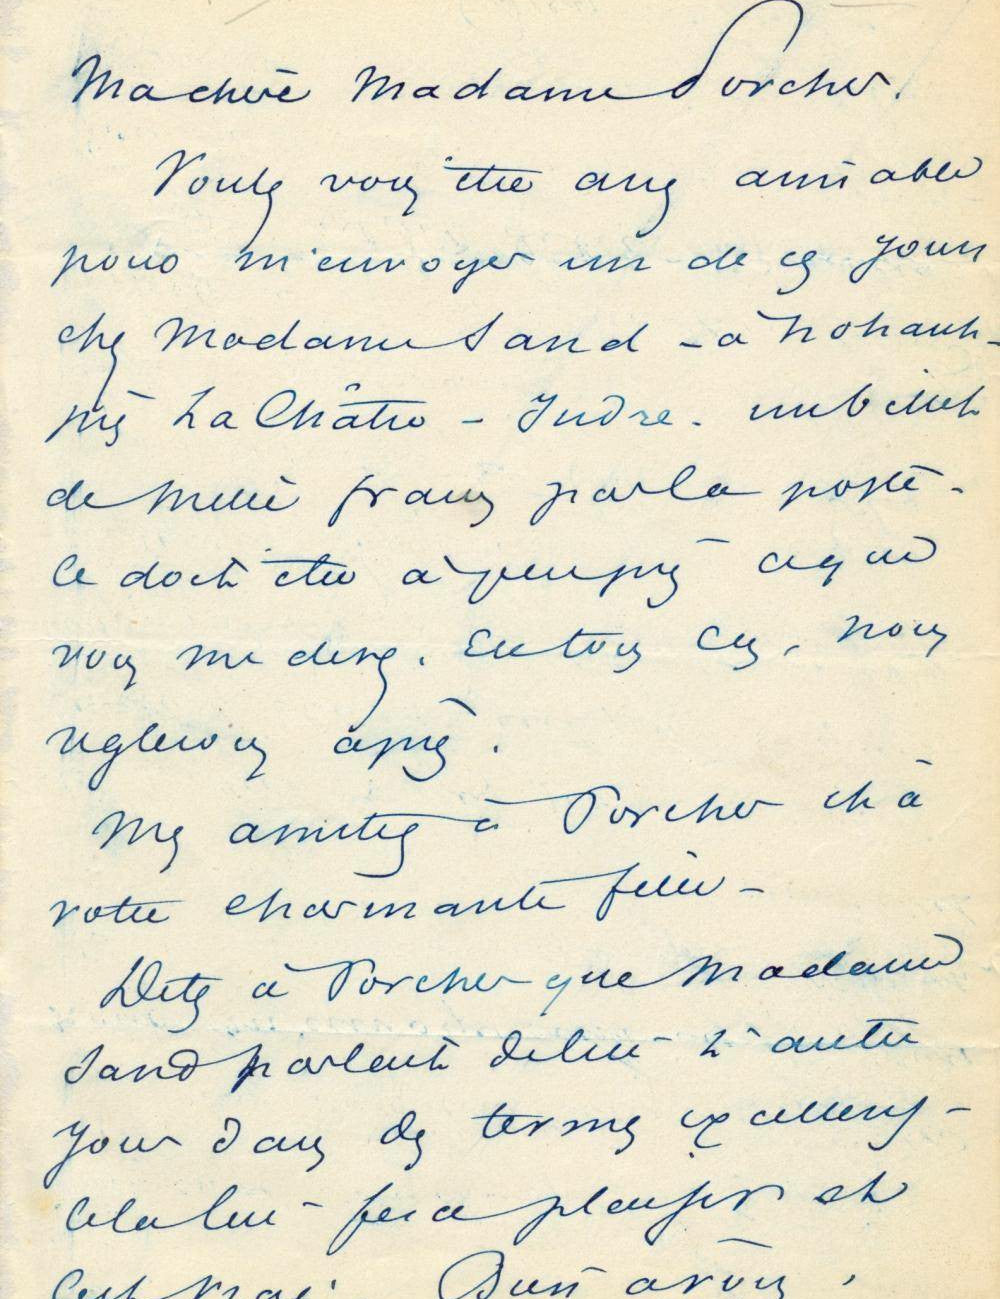 Ma chère Madame Porcher.
Voulez vous être assez aimable
pour m'envoyer un de ces jours
chez Madame Sand – à Nohant –
près La Châtre – Indre. un billet
de mille francs par la poste –
Ce doit être à peu près ce que
vous me devez. En tous cas, nous
réglerons après.
Mes amitiés à Porcher et à
votre charmante fille –
Dites à Porcher que Madame
Sand parlait de lui l'autre
jour dans des termes excellents –
Cela lui fera plaisir et
c'est vrai.